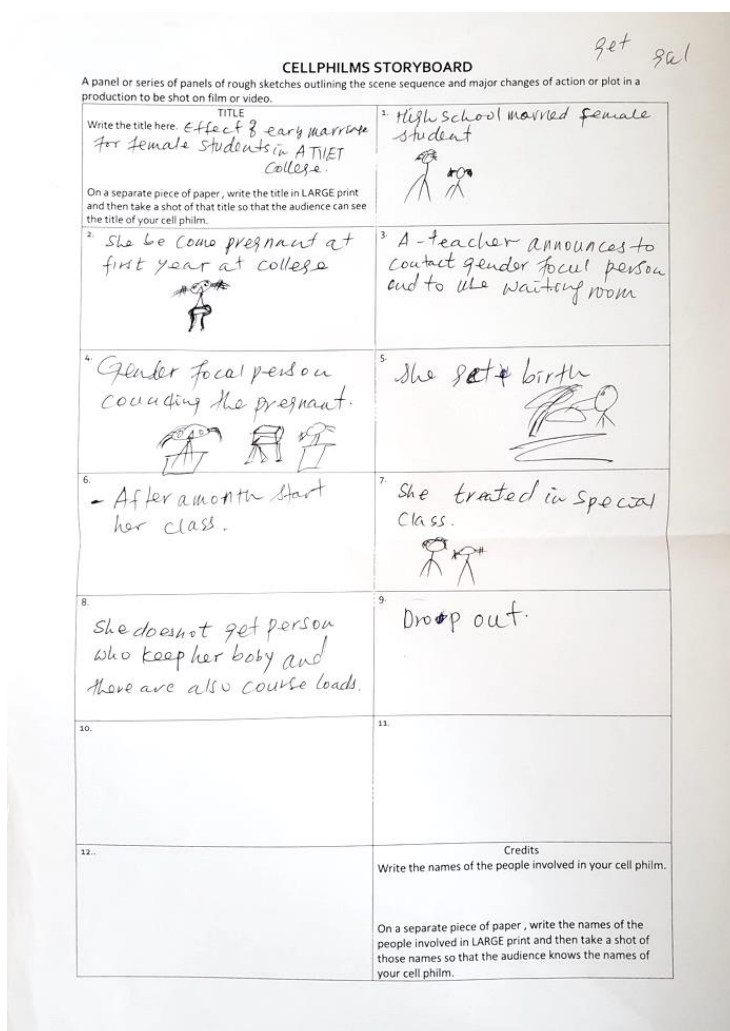 get gal
CELLPHILMS STORYBOARD
A panel or series of panels of rough sketches outlining the scene sequence and major changes of action or plot in a
production to be shot on film or video.
TITLE
Write the title here. Effect of eary marriage
for female students in ATVET
College.
On a separate piece of paper , write the title in LARGE print
and then take a shot of that title so that the audience can see
the title of your cell philm.
1. High school married female
student
2. she be come pregnant at
first year at college
3. A-teacher announces to
contact gender focul person
and to use waiting room
4. Gender focal person
the pregnant.
5. she birth
6.
- After a month start
her class.
7. She treated in special
class.
8.
she doesnot get person
who keep her boby and
there are also course loads.
9.
Drop out.
10.
11.
12..
Credits
Write the names of the people involved in your cell philm.
On a separate piece of paper , write the names of the
people involved in LARGE print and then take a shot of
those names so that the audience knows the names of
your cell philm.